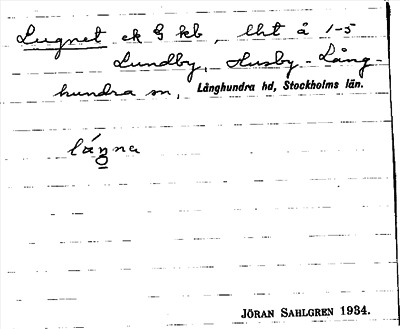 Lugnet ek G kb, lht å 1-5
Lundby, Husby-Lång-
hundra sn, Långhundra hd, Stockholms län.
lánna
JÖRAN SAHLGREN 1934.